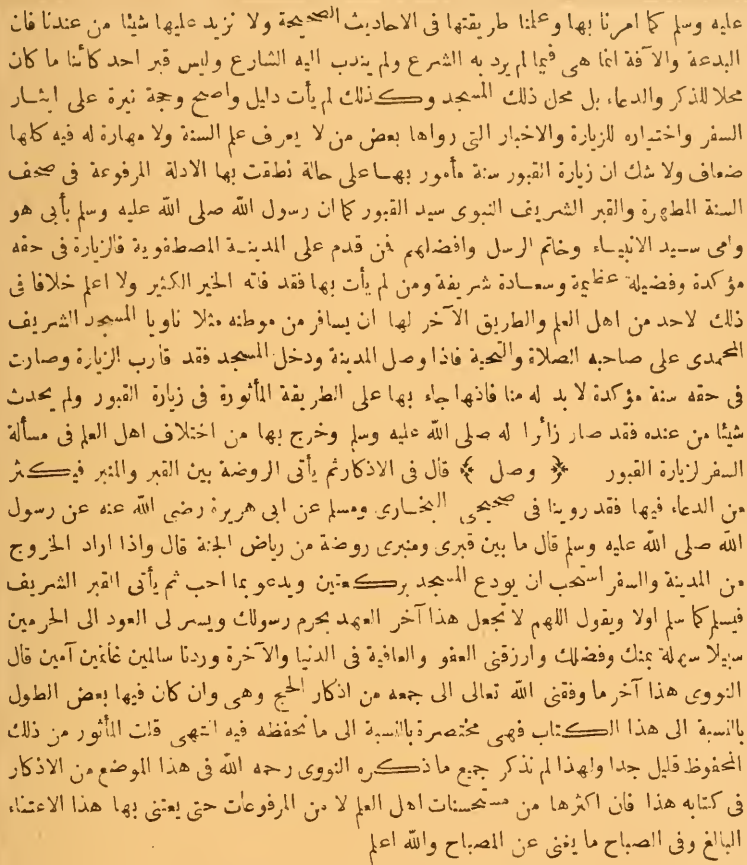 عليه وسلم كما امرنا بها وعلمنا طريقتها فى الاحاديث الصحيحة ولا نزيد عليها شيئا من عندنا فان
البدعة والآفة انما هى فيما لم يرد به الشرع ولم يندب اليه الشارع وليس قبر احد كائنا ما كان
محلا للذكر والدعاء بل محل ذلك المسجد وكذلك لم يأت دليل واضح وحجة نيرة على ايثار
السفر واختياره للزيارة والاخبار التى رواها بعض من لا يعرف علم السنة ولا مهارة له فيه كلها
ضعاف ولا شك ان زيارة القبور سنة مأمور بها على حالة نطقت بها الادلة المرفوعة فى صحف
السنة المطهرة والقبر الشريف النبوى سيد القبور كما ان رسول الله صلى الله عليه وسلم بأبى هو
وامى سيد الانبياء وخاتم الرسل وافضلهم فمن قدم على المدينة المصطفوية فالزيارة فى حقه
مؤكدة وفضيلة عظيمة وسعادة شريفة ومن لم يأت بها فقد فاته الخير الكثير ولا اعلم خلافا فى
ذلك لاحد من اهل العلم والطريق الآخر لها ان يسافر من موطنه مثلا ناويا المسجد الشريف
المحمدى على صاحبه الصلاة والتحية فاذا وصل المدينة ودخل المسجد فقد قارب الزيارة وصارت
فى حقه سنة مؤكدة لا بد له منا فاذها جاء بها على الطريقة المأثورة فى زيارة القبور ولم يحدث
شيئا من عنده فقد صار زائرا له صلى الله عليه وسلم وخرج بها من اختلاف اهل العلم فى مسألة
السفر لزيارة القبور ﴿ وصل ﴾ قال فى الاذكار ثم يأتى الروضة بين القبر والمنبر فيكثر
من الدعاء فيها فقد روينا فى صحيحى البخارى ومسلم عن ابى هريرة رضى الله عنه عن رسول
الله صلى الله عليه وسلم قال ما بين قبرى ومنبرى روضة من رياض الجنة قال واذا اراد الخروج
من المدينة والسفر استحب ان يودع المسجد بركعتين ويدعو بما احب ثم يأتى القبر الشريف
فيسلم كما سلم اولا ويقول اللهم لا تجعل هذا آخر العهد بحرم رسولك ويسر لى العود الى الحرمين
سبيلا سهلة بمنك وفضلك وارزقنى العفو والعافية فى الدنيا والآخرة وردنا سالمين غانمين آمين قال
النووى هذا آخر ما وفقنى الله تعالى الى جمعه من اذكار الحج وهى وان كان فيها بعض الطول
بالنسبة الى هذا الكتاب فهى مختصرة بالنسبة الى ما نحفظه فيه انتهى قلت المأثور من ذلك
المحفوظ قليل جدا ولهذا لم نذكر جميع ما ذكره النووى رحمه الله فى هذا الموضع من الاذكار
فى كتابه هذا فان اكثرها من مستحسنات اهل العلم لا من المرفوعات حتى يعتنى بها هذا الاعتناء
البالغ وفى الصباح ما يغنى عن المصباح والله اعلم